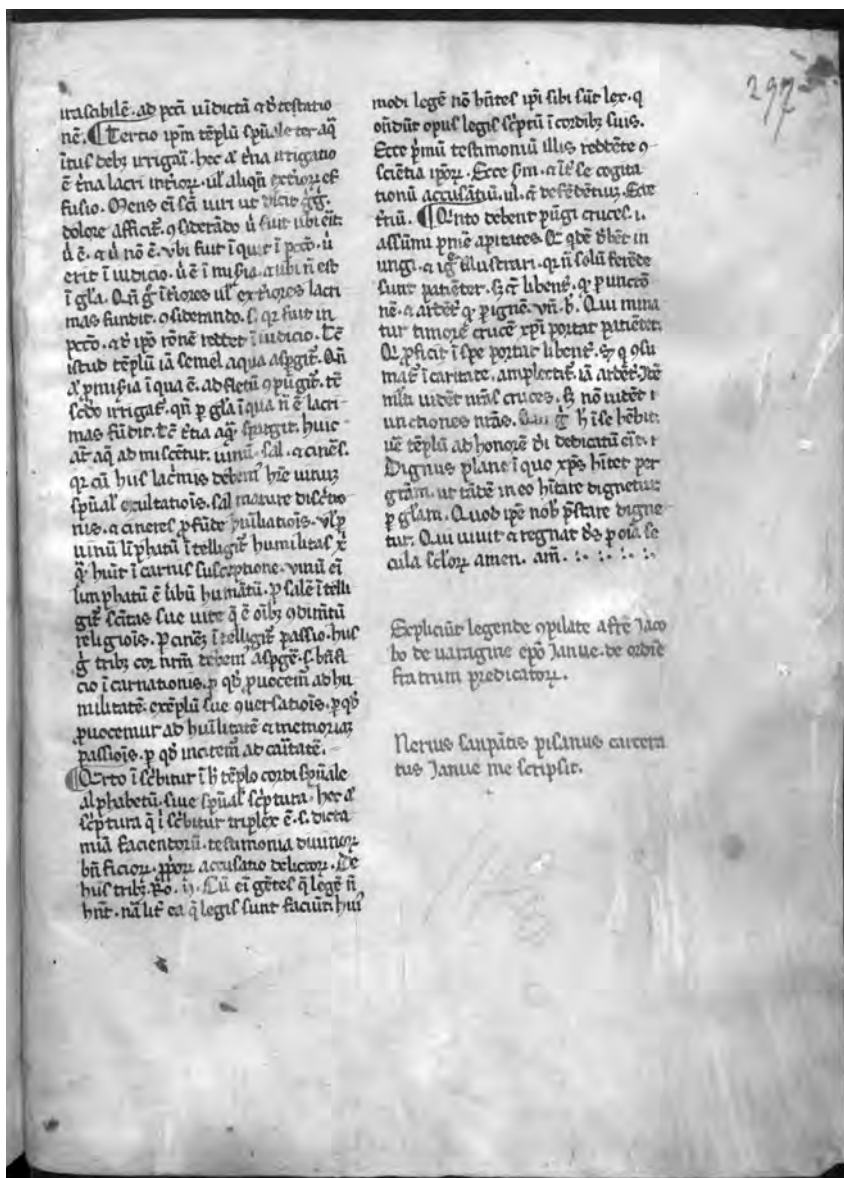 297
irascibilē. ad pcti uīdictā ⁊ dtestatio
nē. ¶ Tertio ipm tēplū spūale ter aq̄
ītus debꝫ irrigari. hec ē t̄na irrigatio
ē t̄na lacri interior. ul aliqn̄ exterior ef
fusio. Mens ei sci uiri ut dicit gg̃.
dolore afficit̃. ꝯsiderādo ů fuit ubi eīt.
ů ē. ⁊ ů nō ē. vbi fuit īquit ī pctō. ů
erit ī iudicio. ů ē ī misia. ⁊ ubi n̄ est
ī gl̄a. Qn̄ g̊ īt̄iores ul ext̄iores lacri
mas fundit. ꝯsiderando. s. qꝛ fuit in
pctō. ⁊ d ipō rōnē reddet ī iudicio. tc̄
istud tēplū iā semel aqua aspgit̃. Qn̄
ad fletū ꝯpūgit̃. tc̄
sc̄do irrigat̃. qn̄ p gl̄a ī qua n̄ ē lacri
mas fūdit. tc̄ t̄tia aq̄ spargit̃. huic
at̄ aq̄ ad miscētur. uinū. sal. ⁊ cineſ.
qꝛ cū hiis lac̄mis debem᷒ hr̄e uinuꝫ
spūal exultatiōis. sal mature disc̄tio
nis. ⁊ cineres ꝓfūde huīliatiōis. vl p
uinū līphatū ītelligit̃ humilitas xp̄i
q̄ huit ī carnis susceptione. vinū ei
limphatū ē ubū humātū. p salē ītelli
git̃ sc̄itas sue uite q̄ ē oībꝫ ꝯdimtū
religiōis. p cineꝫ ītelligit̃ passio. hiis
g̊ tribꝫ cor nr̄m debem᷒ aspgē. s. bn̄fi
cio īcarnationis. p qd̄ ꝓuocem᷒ ad hu
militatē. exēplū sue ꝯuersatiōis. p qd̄
ꝓuocemur ad huīlitatē ⁊ memoriaꝫ
passiōis. p qd̄ incitem᷒ ad cāitatē.
¶ Qrto īsc̄bitur ī h̄ tēplo cordi spūale
alphabetū. siue spūal sc̄ptura. hec ē
sc̄ptura q̄ īsc̄bitur triplex ē. s. dicta
mīa faciendorū. testimonia diuinoꝝ
bn̄ficioꝝ. ꝓpoꝝ accusatio delictoꝝ. De
hiis tribꝫ. Ro. ij. Cū ei gētes q̄ legē n̄
hnt. nālit̄ ea q̄ legis sunt faciūt hui᷒
modi legē nō hn̄tes ipi sibi sūt lex. q
on̄dūt opus legis sc̄ptū ī cordibꝫ suis.
Ecce pmū testimoniū illis reddēte ꝯ
sciētia ipoꝝ. Ecce sm. ⁊ īt̄ se cogita
tionū accusātiū. ul ⁊ defēdētiuꝫ. Ecce
t̄tiū. ¶ Qrnto debent pīgi cruces. i.
assūmi pnie aspitates. Et qdē dbēt in
ungi. ⁊ igē illustrari. qꝛ n̄ solū ferēde
sunt patiēter. sꝫ ⁊ libent̃. qꝫ p unctō
nē. ⁊ ardēt̃ qꝫ p ignē. vn̄. b. Qui inicia
tur timore crucē xp̄i portat patiēter.
Qi ꝓficit ī spe portat libent̃. sꝫ q ꝯsu
mat̃ ī caritate. amplectit̃ iā ardēt̃. Itē
mlti uidēt nr̄as cruces. sꝫ nō uidēt ī
unctiones nr̄as. Qui g̊ h̄ īse hēbit.
uē tēplū ad honorē di dedicatū eīt. ⁊
Dignus plane ī quo xp̄s hītet per
gr̄am. ut tādē in eo hītare dignetuꝛ
p gl̄am. Quod ipe nob̄ p̄stare digne
tur. Qui uiuit ⁊ regnat ds p oīa se
cula scloꝝ amen. am̄.
Expliciūt legende ꝯpilate a fr̄e Jaco
bo de uaragine ep̄o Janue. de ordīe
fratrum predicatoꝝ.
Nerius sanpātis pisanus carcera
tus Janue me scripsit.